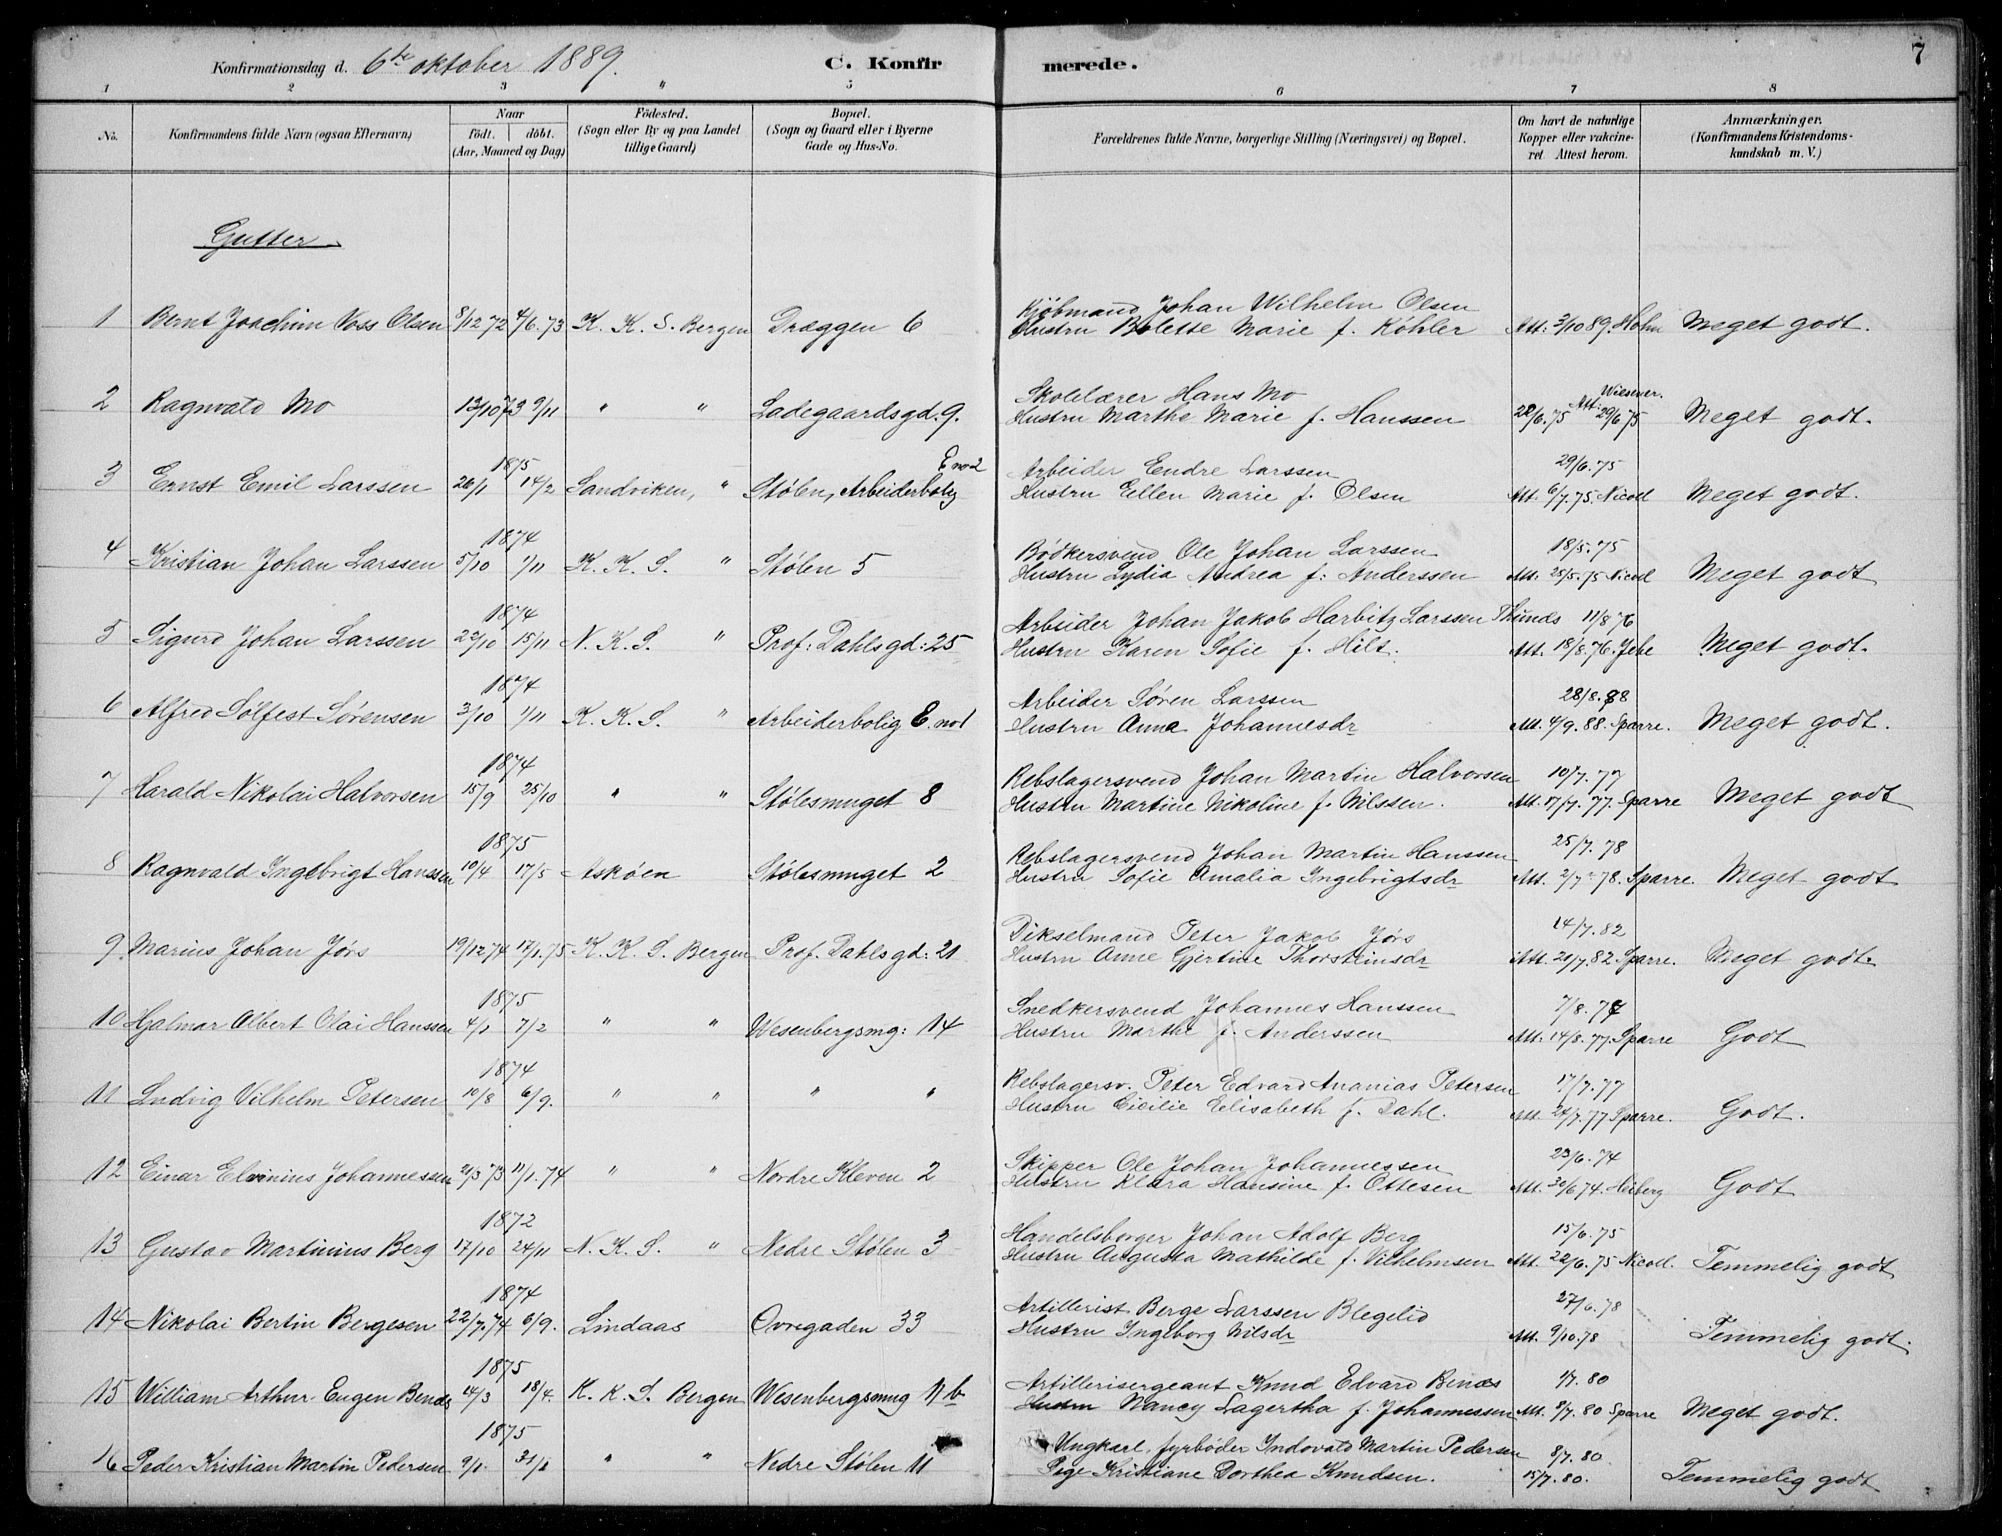 Konfirmationsdag d. 6te oktober 1889.
C. Konfirmerede.
7
1 2 3 4 5 6 7 8
No.
Konfirmandens fulde Navn (ogsaa Efternavn)
Naar
födt. döbt.
(Aar, Maaned og Dag)
Födested.
(Sogn eller By og paa Landet
tillige Gaard)
Bopæl.
(Sogn og Gaard eller i Byerne
Gade og Hus-No.
Forældrenes fulde Navne, borgerlige Stilling (Næringsvei) og Bopæl.
Om havt de naturlige
Kopper eller vakcine-
ret Attest herom.
Anmærkninger.
(Konfirmandens Kristendoms-
kundskab m. V.)
Gutter
1 Bernt Joachim Voss Olsen 8/12 72 4/6.73 K. K. S. Bergen Dræggen 6
Kjöbmand Johan Wilhelm Olsen
Hustru Bolette Marie f. Köhler Att: 3/10 89. Holm Meget godt.
2 Ragnvald Mo 13/10 73 9/11 " " Ladegaardsgd. 9.
Skolelærer Hans Mo Wiesener.
Hustru Marthe Marie f. Hanssen 22/6.75 Att. 29/6 75 Meget godt.
3 Ernst Emil Larssen 1875 26/1 14/2 Sandviken, " Stølen, Arbeiderbolig E no 2
Arbeider Endre Larssen 29/6.75
Hustru Ellen Marie f. Olsen Att. 6/7.75. Nicol Meget godt.
4 Kristian Johan Larssen 1874 5/10 1/11 K. K. S. " Stølen 5
Bödkersvend Ole Johan Larssen 18/5.75
Hustru Lydia Andrea f: Anderssen Att: 25/5.75 Nicol Meget godt
5 Sigurd Johan Larssen 1874 22/10 15/11 N. K. S. " Prof: Dahlsgd: 25
Arbeider Johan Jakob Harbitz Larssen Thunds 11/8 76
Hustru Karen Sofie f. Hilt. Att. 18/8.76. Jebe Meget godt.
6 Alfred Sölfest Sörensen 1874 3/10 1/11 K. K. S. " Arbeiderbolig E. no 1
Arbeider Sören Larssen 28/8.88
Hustru Anna Johannesdr Att. 4/9.88. Sparre. Meget godt.
7 Harald Nikolai Halvorsen 1874 15/9 25/10 " " Stølesmuget 8
Rebslagersvend Johan Martin Halvorsen 10/7.77
Hustru Martine Nikoline f. Nilssen. Att. 17/7.77. Sparre Meget godt
8 Ragnvald Ingebrigt Hanssen 1875 10/4 17/5 Askøen Stølesmuget 2
Rebslagersvend Johan Martin Hanssen 25/7.78
Hustru Sofie Amalia Ingebrigtsdr Att. 2/7.78. Sparre. Meget godt
9. Marius Johan Jörs 19/12 74 17/1.75 K. K. S. Bergen Prof. Dahlsgd: 21
Dikselmand Peter Jakob Jörs 14/7.82
Hustru Anne Gjertine Thorsteinsdr Att. 21/7.82. Sparre. Meget godt.
10 Hjalmar Albert Olai Hanssen 1875 4/1 7/2 " " Wesenbergsmg: 14
Snedkersvend Johannes Hanssen 7/8.77
Hustru Marthe f. Anderssen Att: 14/8.77. Sparre Godt
11 Ludvig Vilhelm Petersen 1874 10/8 6/9. " " " "
Rebslagersv. Peter Edvard Ananias Petersen 17/7.77
Hustru Cicilie Elisabeth f. Dahl. Att. 24/7.77 Sparre. Godt.
12 Einar Elvinius Johannessen 21/3 73 11/1.74 " " Nordre Kleven 2
Skipper Ole Johan Johannessen 23/6.74
Hustru Klara Hansine f. Ottesen Att. 30/6 74. Heiberg Godt
13 Gustav Martinius Berg 1872 17/10 24/11 N. K. S. " Nedre Stølen 3
Handelsborger Johan Adolf Berg 15/6.75
Hustru Augusta Mathilde f. Vilhelmsen Att. 22/6.75 Nicol. Temmelig godt
14 Nikolai Bertin Bergesen 1874 22/7.74 6/9. Lindaas Ovregaden 33
Artillerist Berge Larssen Blegelid 27/6.78
Hustru Ingeborg Nilsdr Att. 9/10.78 Temmelig godt.
15 William Arthur Eugen Bends 1875 14/3 18/4. K. K. S. Bergen Wesenbergsmug 11 b
Artillerisergeant Knud Edvard Bends 1/7.80
Hustru Nancy Lagertha f. Johannessen Att. 8/7.80 Sparre Meget godt.
16 Peder Kristian Martin Pedersen 1875 9/1. 31/1 " " Nedre Stølen 11
Ungkarl, fyrböder Indovald Martin Pedersen 8/7.80
Pige Kristiane Dorthea Knudsen. 15/7.80. Temmelig godt